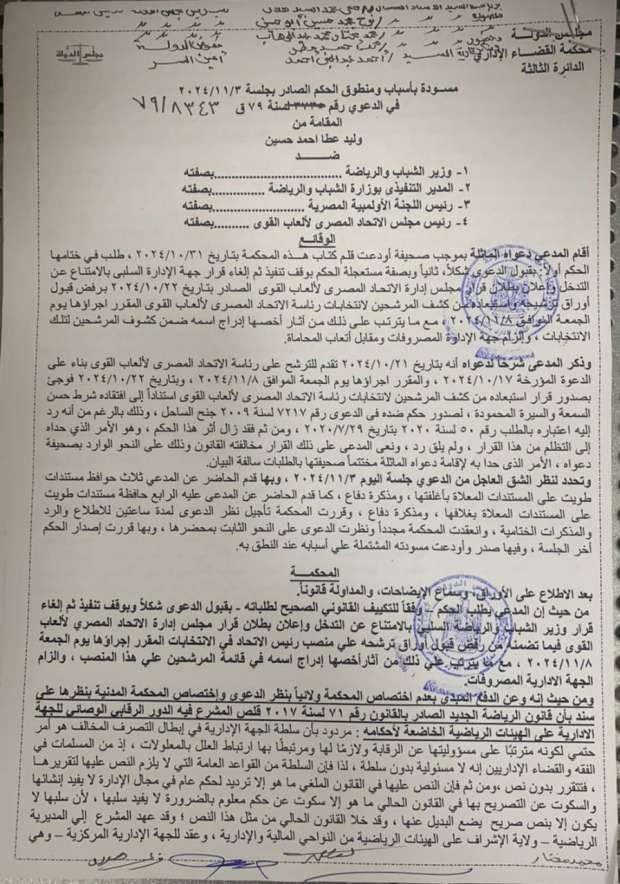 مجلس الدولة
مجلس الدولة
محكمة القضاء الإداري
الدائرة الثالثة
مسودة بأسباب ومنطوق الحكم الصادر بجلسة ٢٠٢٤/١١/٣
في الدعوي رقم لسنة ٧٩ ق ٧٩/٨٣٤٣
المقامة من
وليد عطا احمد حسين
ضـــد
١- وزير الشباب والرياضة ........................بصفته
٢- المدير التنفيذى بوزارة الشباب والرياضة ...............بصفته
٣- رئيس اللجنة الأولمبية المصرية .....................بصفته
٤- رئيس مجلس الاتحاد المصرى لألعاب القوى ..........بصفته
الوقائع
أقام المدعي دعواه الماثلة بموجب صحيفة أودعت قلم كتاب هذه المحكمة بتاريخ ٢٠٢٤/١٠/٣١ ، طلب في ختامها
الحكم أولاً: بقبول الدعوى شكلاً، ثانياً وبصفة مستعجلة الحكم بوقف تنفيذ ثم إلغاء قرار جهة الإدارة السلبى بالامتناع عن
التدخل وإعلان بطلان قرار مجلس إدارة الاتحاد المصرى لألعاب القوى الصادر بتاريخ ٢٠٢٤/١٠/٢٢ برفض قبول
أوراق ترشيحه واستبعاده من كشف المرشحين لانتخابات رئاسة الاتحاد المصرى لألعاب القوى المقرر اجراؤها يوم
الجمعة الموافق ٢٠٢٤/١١/٨ ، مع ما يترتب على ذلك من آثار أخصها إدراج اسمه ضمن كشوف المرشحين لتلك
الانتخابات ، وإلزام جهة الإدارة المصروفات ومقابل أتعاب المحاماة.
وذكر المدعى شرحاً لدعواه أنه بتاريخ ٢٠٢٤/١٠/٢١ تقدم للترشح على رئاسة الاتحاد المصرى لألعاب القوى بناء على
الدعوة المؤرخة ٢٠٢٤/١٠/١٧ ، والمقرر اجراؤها يوم الجمعة الموافق ٢٠٢٤/١١/٨ ، وبتاريخ ٢٠٢٤/١٠/٢٢ فوجئ
بصدور قرار استبعاده من كشف المرشحين لانتخابات رئاسة الاتحاد المصرى لألعاب القوى استناداً إلى افتقاده شرط حسن
السمعة والسيرة المحمودة ، لصدور حكم ضده في الدعوى رقم ٧٢١٧ لسنة ٢٠٠٩ جنح الساحل ، وذلك بالرغم من أنه رد
إليه اعتباره بالطلب رقم ٥٠ لسنة ٢٠٢٠ بتاريخ ٢٠٢٠/٧/٢٩ ، ومن ثم فقد زال أثر هذا الحكم ، وهو الأمر الذي حداه
إلى التظلم من هذا القرار ، ولم يلق رد ، ونعى المدعى على ذلك القرار مخالفته القانون وذلك على النحو الوارد بصحيفة
دعواه ، الأمر الذى حدا به لإقامة دعواه الماثلة مختتماً صحيفتها بالطلبات سالفة البيان.
وتحدد لنظر الشق العاجل من الدعوي جلسة اليوم ٢٠٢٤/١١/٣ ، وبها قدم الحاضر عن المدعي ثلاث حوافظ مستندات
طويت على المستندات المعلاة بأغلفتها ، ومذكرة دفاع ، كما قدم الحاضر عن المدعى عليه الرابع حافظة مستندات طويت
على المستندات المعلاة بغلافها ، ومذكرة دفاع ، وقررت المحكمة تأجيل نظر الدعوى لمدة ساعتين للاطلاع والرد
والمذكرات الختامية ، وانعقدت المحكمة مجدداً ونظرت الدعوى على النحو الثابت بمحضرها ، وبها قررت إصدار الحكم
آخر الجلسة ، وفيها صدر وأودعت مسودته المشتملة علي أسبابه عند النطق به.
المحكمــــة
بعد الاطلاع على الأوراق، وسماع الإيضاحات، والمداولة قانوناً.
من حيث إن المدعي يطلب الحكم – وفقاً للتكييف القانوني الصحيح لطلباته - بقبول الدعوى شكلاً وبوقف تنفيذ ثم إلغاء
قرار وزير الشباب والرياضة السلبي بالامتناع عن التدخل وإعلان بطلان قرار مجلس إدارة الاتحاد المصري لألعاب
القوى فيما تضمنه من رفض قبول أوراق ترشحه علي منصب رئيس الاتحاد في الانتخابات المقرر إجراؤها يوم الجمعة
٢٠٢٤/١١/٨ ، مع ما يترتب علي ذلك من آثار أخصها إدراج اسمه في قائمة المرشحين علي هذا المنصب ، والزام
الجهة الادارية المصروفات.
ومن حيث إنه وعن الدفع المبدى بعدم اختصاص المحكمة ولائياً بنظر الدعوى وإختصاص المحكمة المدنية بنظرها علي
سند بأن قانون الرياضة الجديد الصادر بالقانون رقم ٧١ لسنة ٢٠١٧ قلص المشرع فيه الدور الرقابي الوصائي للجهة
الادارية علي الهيئات الرياضية الخاضعة لأحكامه : مردود بأن سلطة الجهة الإدارية في إبطال التصرف المخالف هو أمر
حتمي لكونه مترتباً على مسؤوليتها عن الرقابة ولازمًا لها ومرتبطًا بها ارتباط العلل بالمعلولات ، إذ من المسلمات في
الفقه والقضاء الإداريين إنه لا مسئولية بدون سلطة ، لذا فإن السلطة من القواعد العامة التي لا يلزم النص عليها لتقريرها
، فتتقرر بدون نص ،ومن ثم فإن النص عليها في القانون الملغي ما هو إلا ترديد لحكم عام في مجال الإدارة لا يفيد إنشائها
والسكوت عن التصريح بها في القانون الحالي ما هو إلا سكوت عن حكم معلوم بالضرورة لا يفيد سلبها ، لأن سلبها لا
يكون إلا بنص صريح بضع البديل عنها ، وقد خلا القانون الحالي من مثل هذا النص ؛ وقد عهد المشرع إلي المديرية
الرياضية – ولاية الإشراف على الهيئات الرياضية من النواحي المالية والإدارية ، وعقد للجهة الإدارية المركزية – وهي